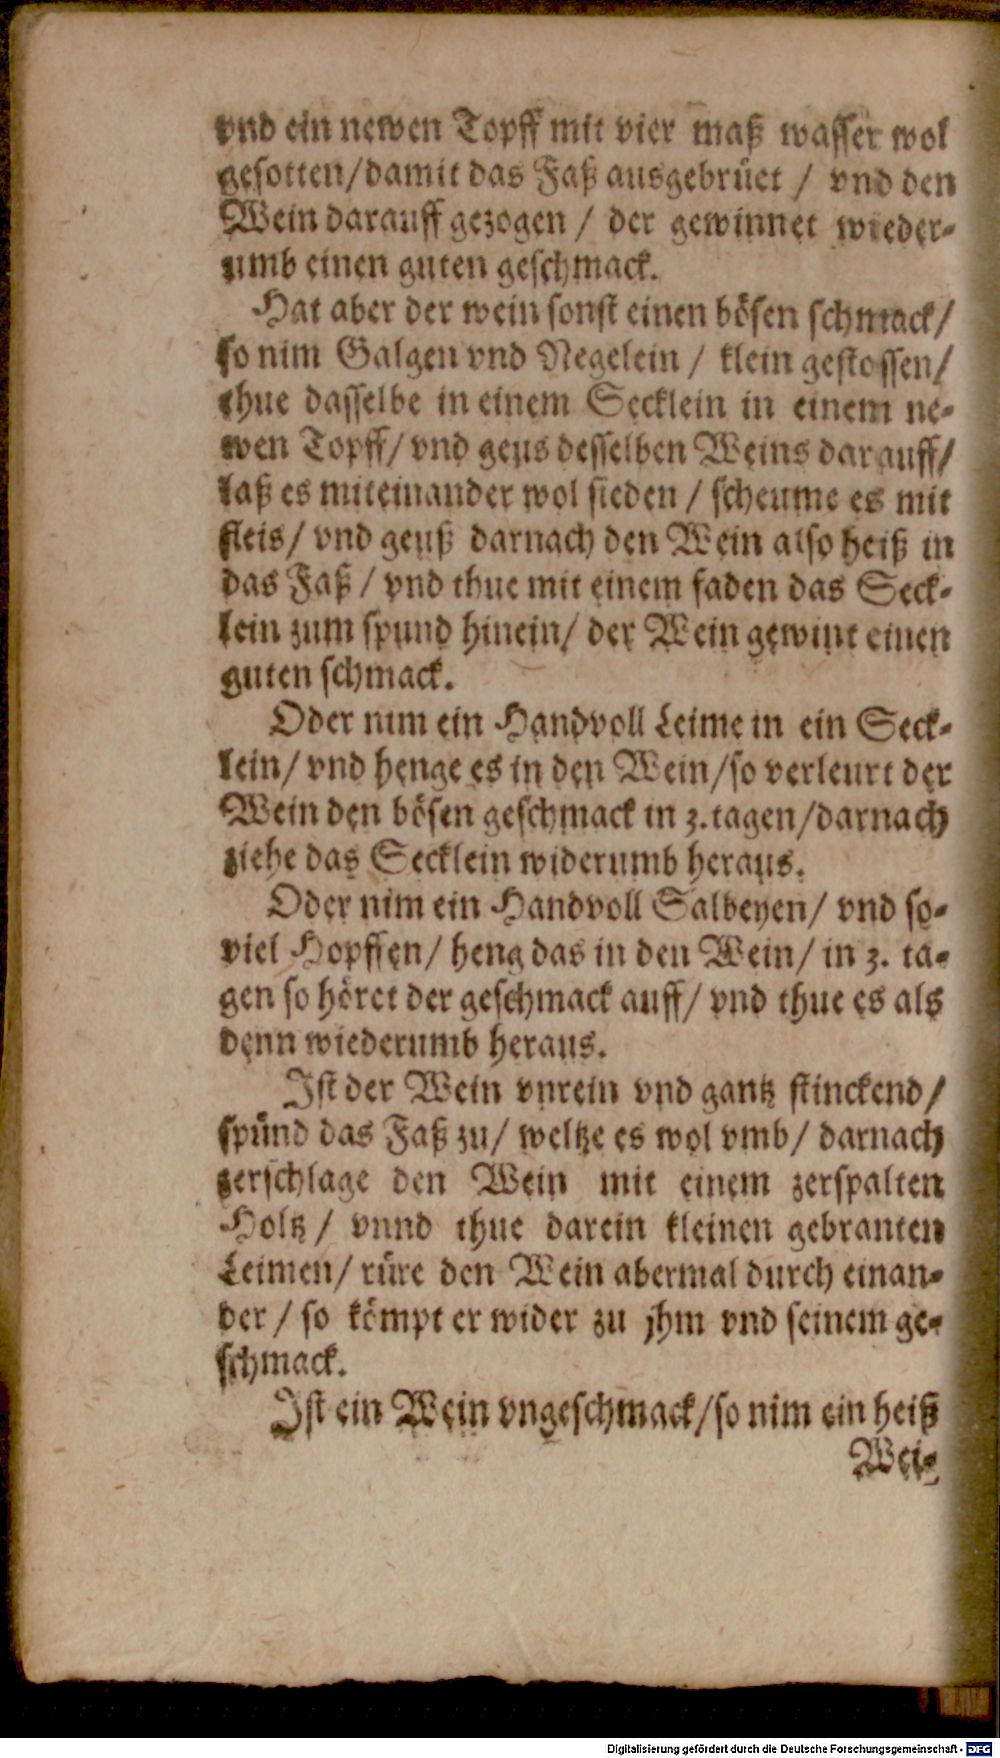 vnd ein newen Topff mit vier maß wasser wol
gesotten/damit das Faß ausgebrüet / vnd den
Wein darauff gezogen / der gewinnet wieder-
umb einen guten geschmack.
Hat aber der wein sonst einen bösen schmack/
so nim Galgen vnd Negelein / klein gestossen/
thue dasselbe in einem Secklein in einem ne-
wen Topff/ vnd geus desselben Weins darauff/
laß es miteinander wol sieden / scheume es mit
fleis/ vnd geuß darnach den Wein also heiß in
das Faß / vnd thue mit einem faden das Seck-
lein zum spund hinein/ der Wein gewint einen
guten schmack.
Oder nim ein Handvoll Leime in ein Seck-
lein/ vnd henge es in den Wein/so verleurt der
Wein den bösen geschmack in 3.tagen/darnach
ziehe das Secklein widerumb heraus.
Oder nim ein Handvoll Salbeyen/ vnd so-
viel Hopffen/ heng das in den Wein/ in 3. ta-
gen so höret der geschmack auff/ vnd thue es als
denn wiederumb heraus.
Ist der Wein vnrein vnd gantz stinckend/
spünd das Faß zu/ weltze es wol vmb/ darnach
zerschlage den Wein mit einem zerspalten
Holtz / vnnd thue darein kleinen gebranten
Leimen/ rüre den Wein abermal durch einan-
der / so kömpt er wider zu jhm vnd seinem ge-
schmack.
Ist ein Wein vngeschmack/so nim ein heiß
Wei-
Digitalisierung gefördert durch die Deutsche Forschungsgemeinschaft - DFG